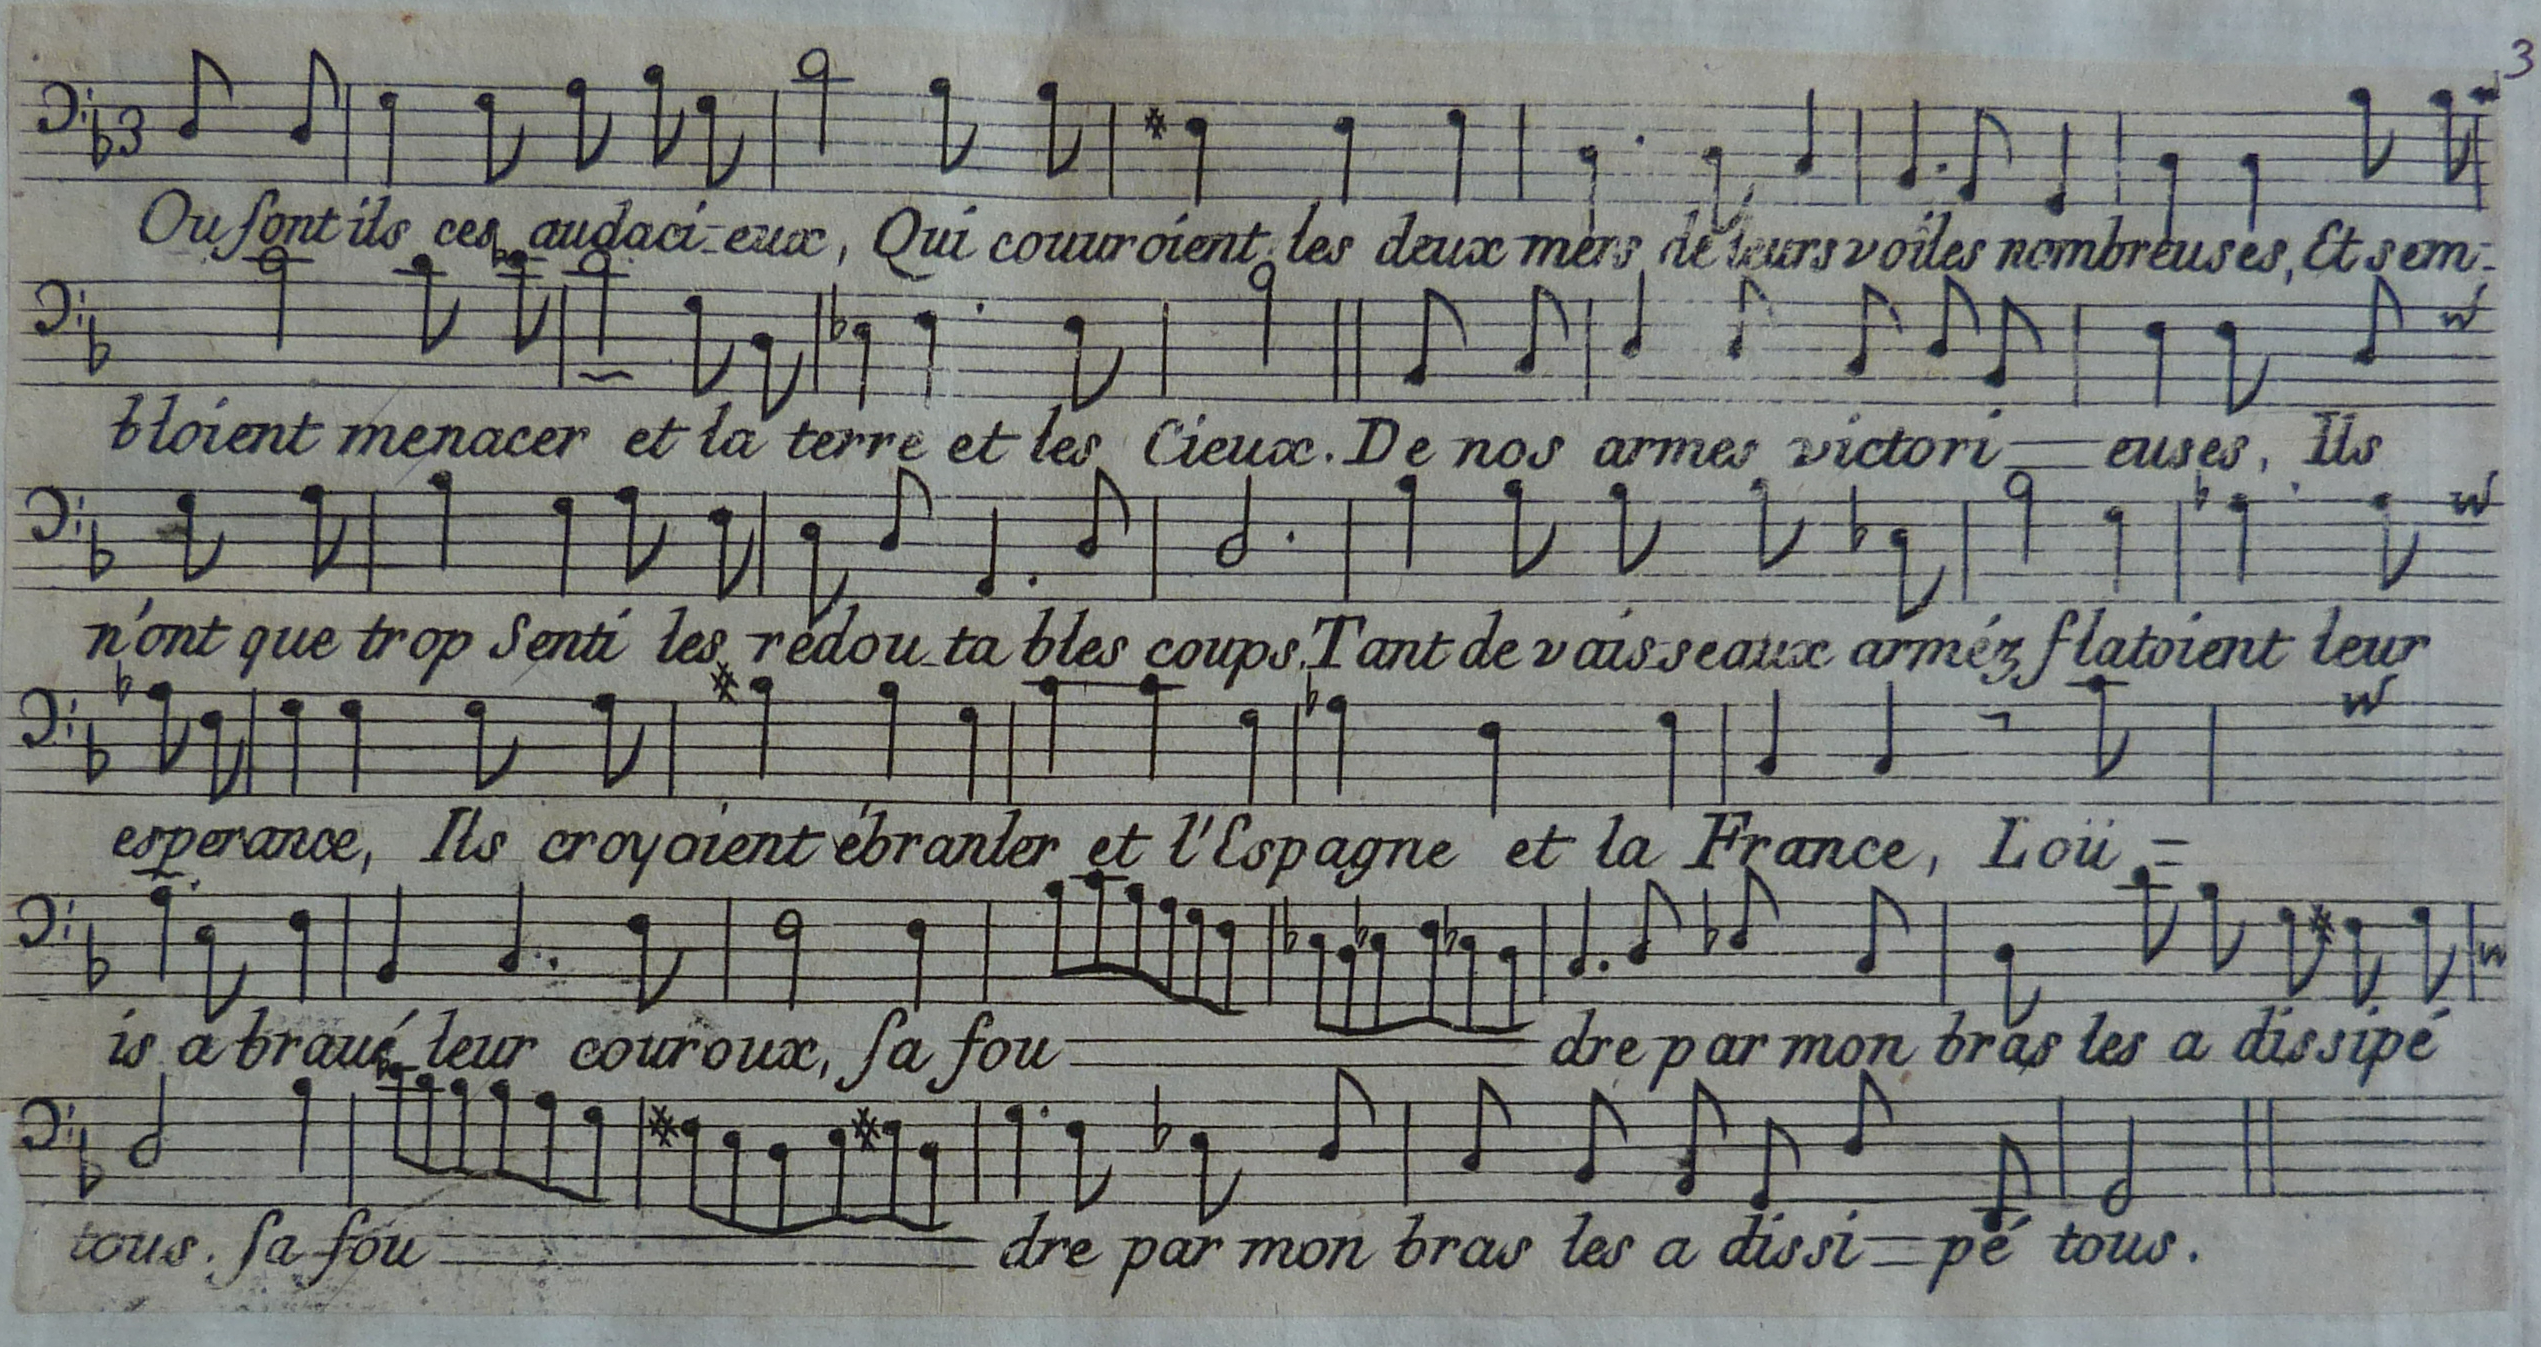 3
3
Ou sont ils ces audaci-eux, Qui couuroient les deux mers de leurs voiles nombreuses, Et sem-
bloient menacer et la terre et les Cieux. De nos armes victori=euses, Ils
n'ont que trop senti les redou-ta bles coups, Tant de vaisseaux arméz flatoient leur
esperance, Ils croyoient ébranler et l'Espagne et la France, Loü=
is a braué leur couroux, sa fou dre par mon bras les a dissipé
tous. sa fou dre par mon bras les a dissi=pé tous.